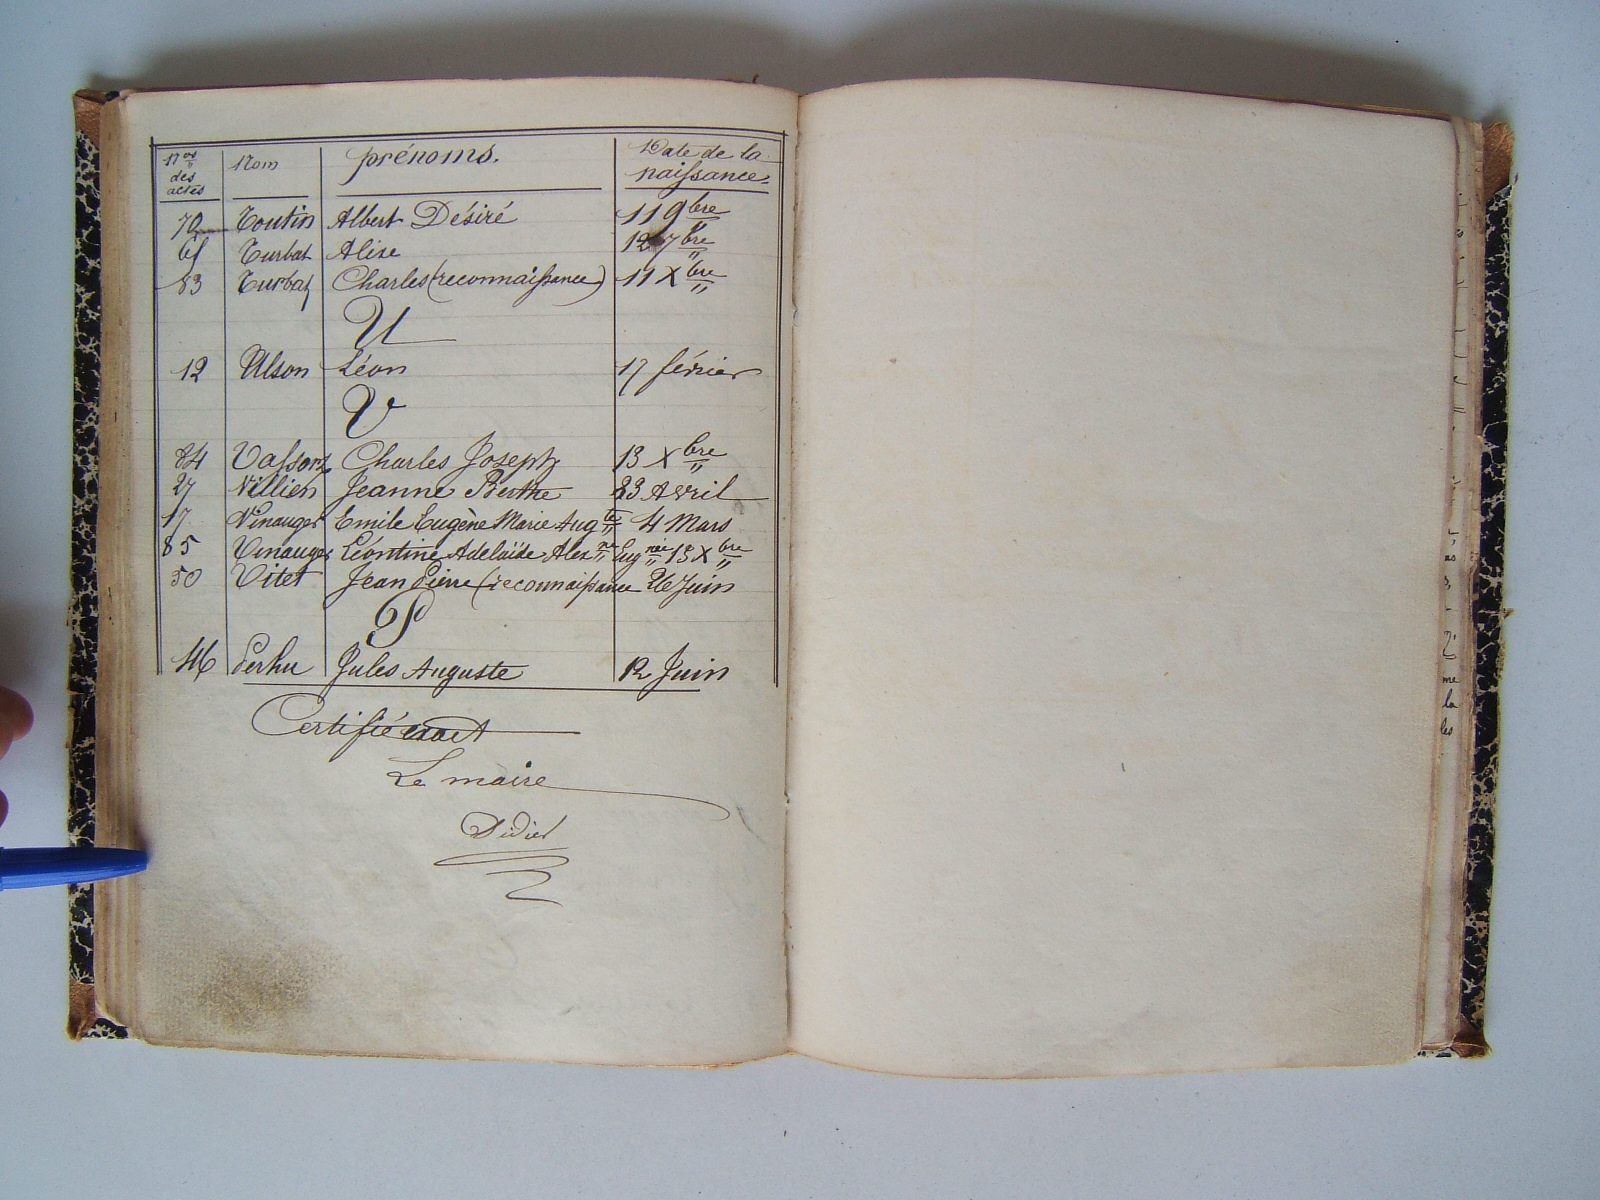 Nos des actes Nom prénoms. Date de la naissance.
72 Toutin Albert Désiré 11 9bre
61 Turbat Alise 12 7bre
83 Turbat Charles (reconnaissance) 11 Xbre
U
12 Ulson Léon 17 février
V
84 Vassort Charles Joseph 13 Xbre
27 Villien Jeanne Berthe 23 Avril
17 Vinauger Emile Eugène Marie Augte 4 Mars
85 Vinauger Léontine Adelaïde Alexne Eugnée 13 Xbre
50 Vitet Jean Pierre (reconnaissance 26 Juin
P
46 Perhu Jules Auguste 12 Juin
Certifié exact
Le maire
Didier
me
la
les